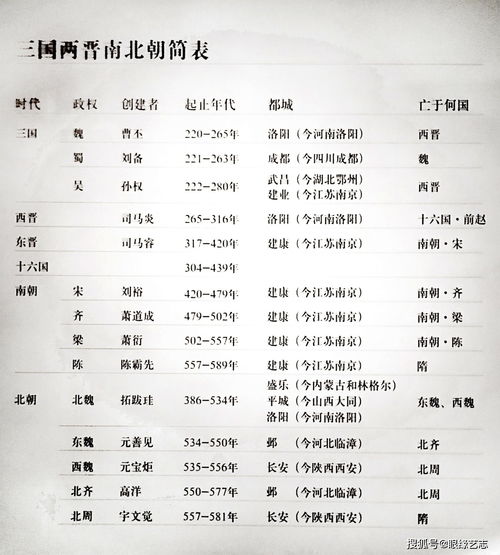 三国两晋南北朝简表
时代 政权 创建者 起止年代 都城 亡于何国
三国 魏 曹丕 220-265年 洛阳（今河南洛阳） 西晋
蜀 刘备 221-263年 成都（今四川成都） 魏
吴 孙权 222-280年 武昌（今湖北鄂州） 西晋
建业（今江苏南京）
西晋 司马炎 265-316年 洛阳（今河南洛阳） 十六国·前赵
东晋 司马睿 317-420年 建康（今江苏南京） 南朝·宋
十六国 304-439年
南朝 宋 刘裕 420-479年 建康（今江苏南京） 南朝·齐
齐 萧道成 479-502年 建康（今江苏南京） 南朝·梁
梁 萧衍 502-557年 建康（今江苏南京） 南朝·陈
陈 陈霸先 557-589年 建康（今江苏南京） 隋
盛乐（今内蒙古和林格尔）
北朝 北魏 拓跋珪 386-534年 平城（今山西大同） 东魏、西魏
洛阳（今河南洛阳）
东魏 元善见 534-550年 邺（今河北临漳） 北齐
西魏 元宝炬 535-556年 长安（今陕西西安） 北周
北齐 高洋 550-577年 邺（今河北临漳） 北周
北周 宇文觉 557-581年 长安（今陕西西安） 隋
搜狐号@眼缘艺志